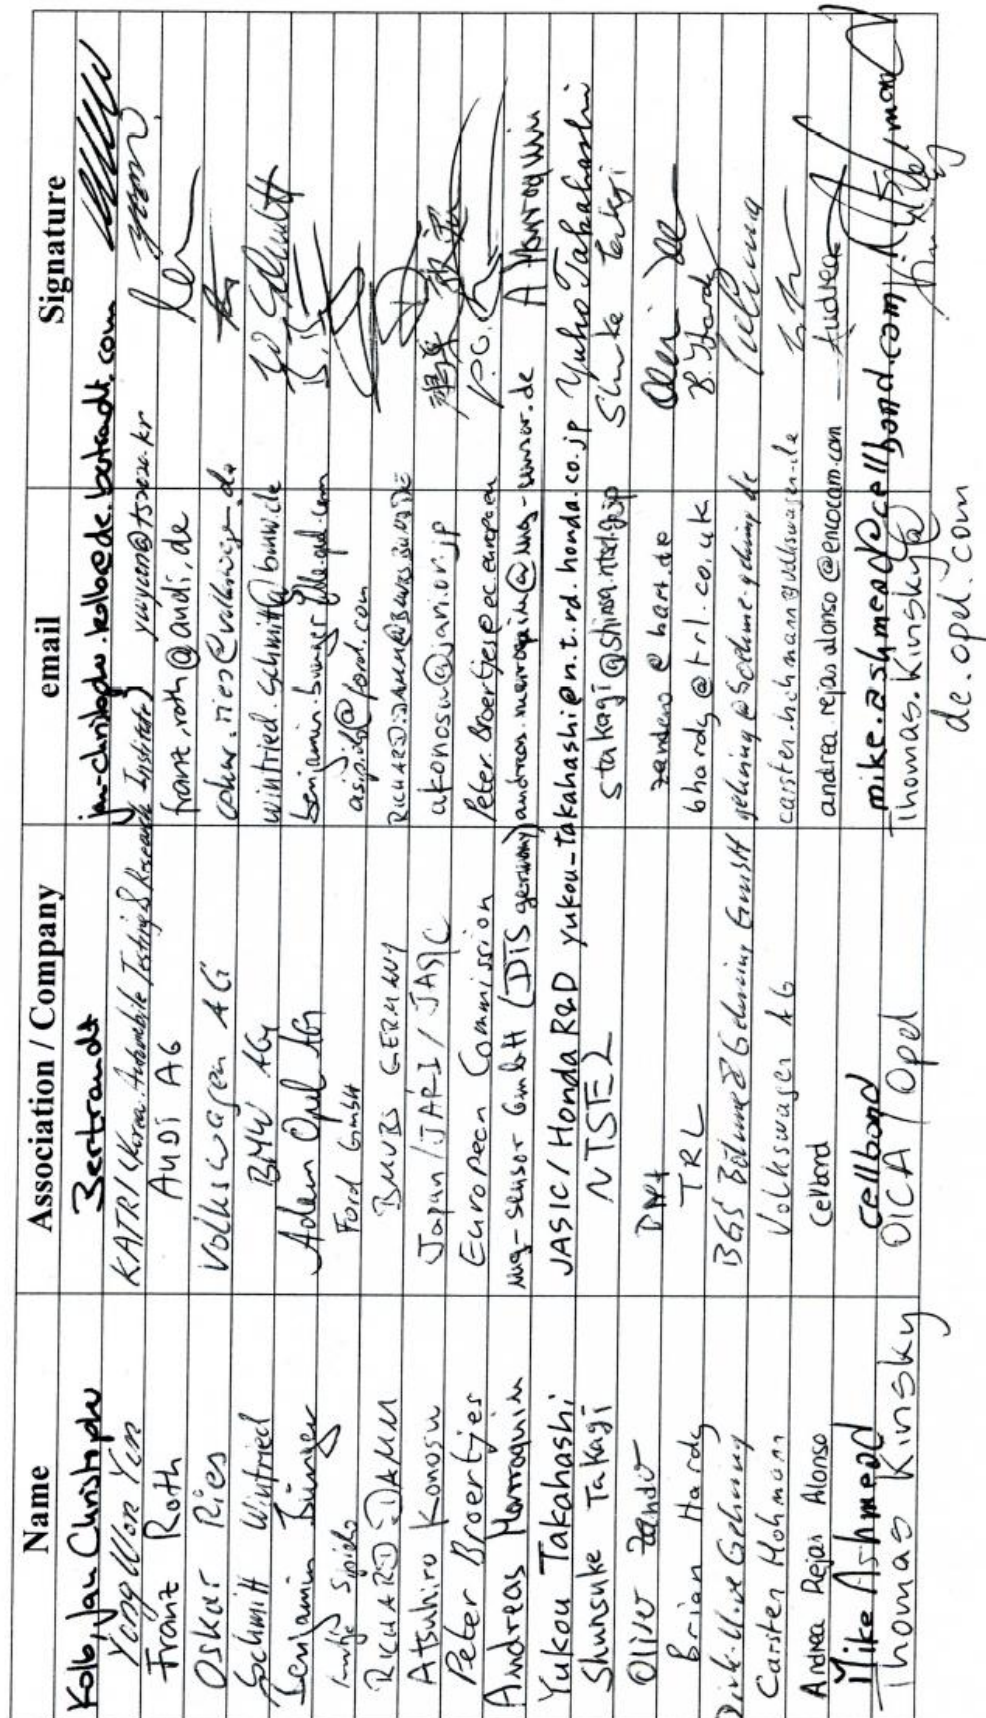 Name Association / Company email Signature
Kolb, Jan Christoph Bertrandt jan-christoph.kolb@de.bertrandt.com
Yong Won Yun KATRI (Korea Automobile Testing & Research Institute) yuyun@ts2020.kr
Franz Roth AUDI AG franz.roth@audi.de
Oskar Ries Volkswagen AG
Schmitt Winfried BMW AG winfried.schmitt@bmw.de W Schmitt
Benjamin Bünger Adam Opel AG benjamin.buenger@de.opel.com
Ford GmbH @ford.com
RICHARD DAMM BMVBS GERMANY
Atsuhiro Konosu Japan / JARI / JASIC akonosu@jari.or.jp
Peter Broertjes European Commission
Andreas Marroquin mg-sensor GmbH (DTS germany) andreas.marroquin@mg-sensor.de A Marroquin
Yukou Takahashi JASIC / Honda R&D yukou-takahashi@n.t.rd.honda.co.jp Yuko Takahashi
Shunsuke Takagi NTSEL stakagi@shinsa.ntsel.go.jp Shunsuke Takagi
Oliver Zander zander@bast.de
Brian Hardy TRL bhardy@trl.co.uk B. Hardy
Dirk-Uwe Gehring BGS Böhme & Gehring GmbH
Carsten Hohmann Volkswagen AG carsten.hohmann@volkswagen.de
Andrea Rejas Alonso Cellbond andrea.rejas alonso@encocam.com Andrea
Mike Ashmead Cellbond mike.ashmead@cellbond.com
Thomas Kinsky OICA / Opel Thomas.Kinsky@
de.opel.com